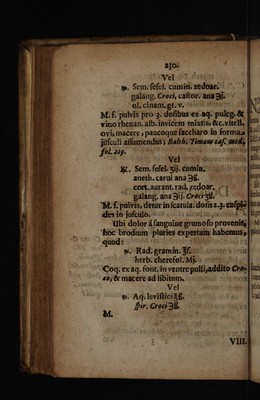 230.
Vel
℞. Sem. sesel. cumin. zedoar.
galang. Croci, castor. ana ℈j.
ol. cinam. gt. v.
M. f. pulvis pro 3. dosibus ex aq. puleg. &
vino rhenan. alb. invicem mixtis. &c. vitell.
ovi, macere, paucoque saccharo in forma
jusculi assumendus; Balth. Timaeus cas. med.
fol. 229.
Vel
℞. Sem. sesel. ʒij. cumin.
aneth. carui ana ℈ß.
cort. aurant. rad. zedoar.
galang. ana ℈ij. Croci ʒß.
M. f. pulvis, detur in scatula. dosis 2. 3. cuspi-
des in jusculo.
Ubi dolor á sanguine grumoso provenit,
hoc brodium pluries expertum habemus,
quod:
℞. Rad. gramin. ℥ß.
herb. cherefol. Mj.
Coq. ex aq. font. in ventre pulli, addito Cro-
co, & macere ad libitum.
Vel
℞. Aq. levistici ℥ß.
spir. Croci ℈ß.
M.
VIII.